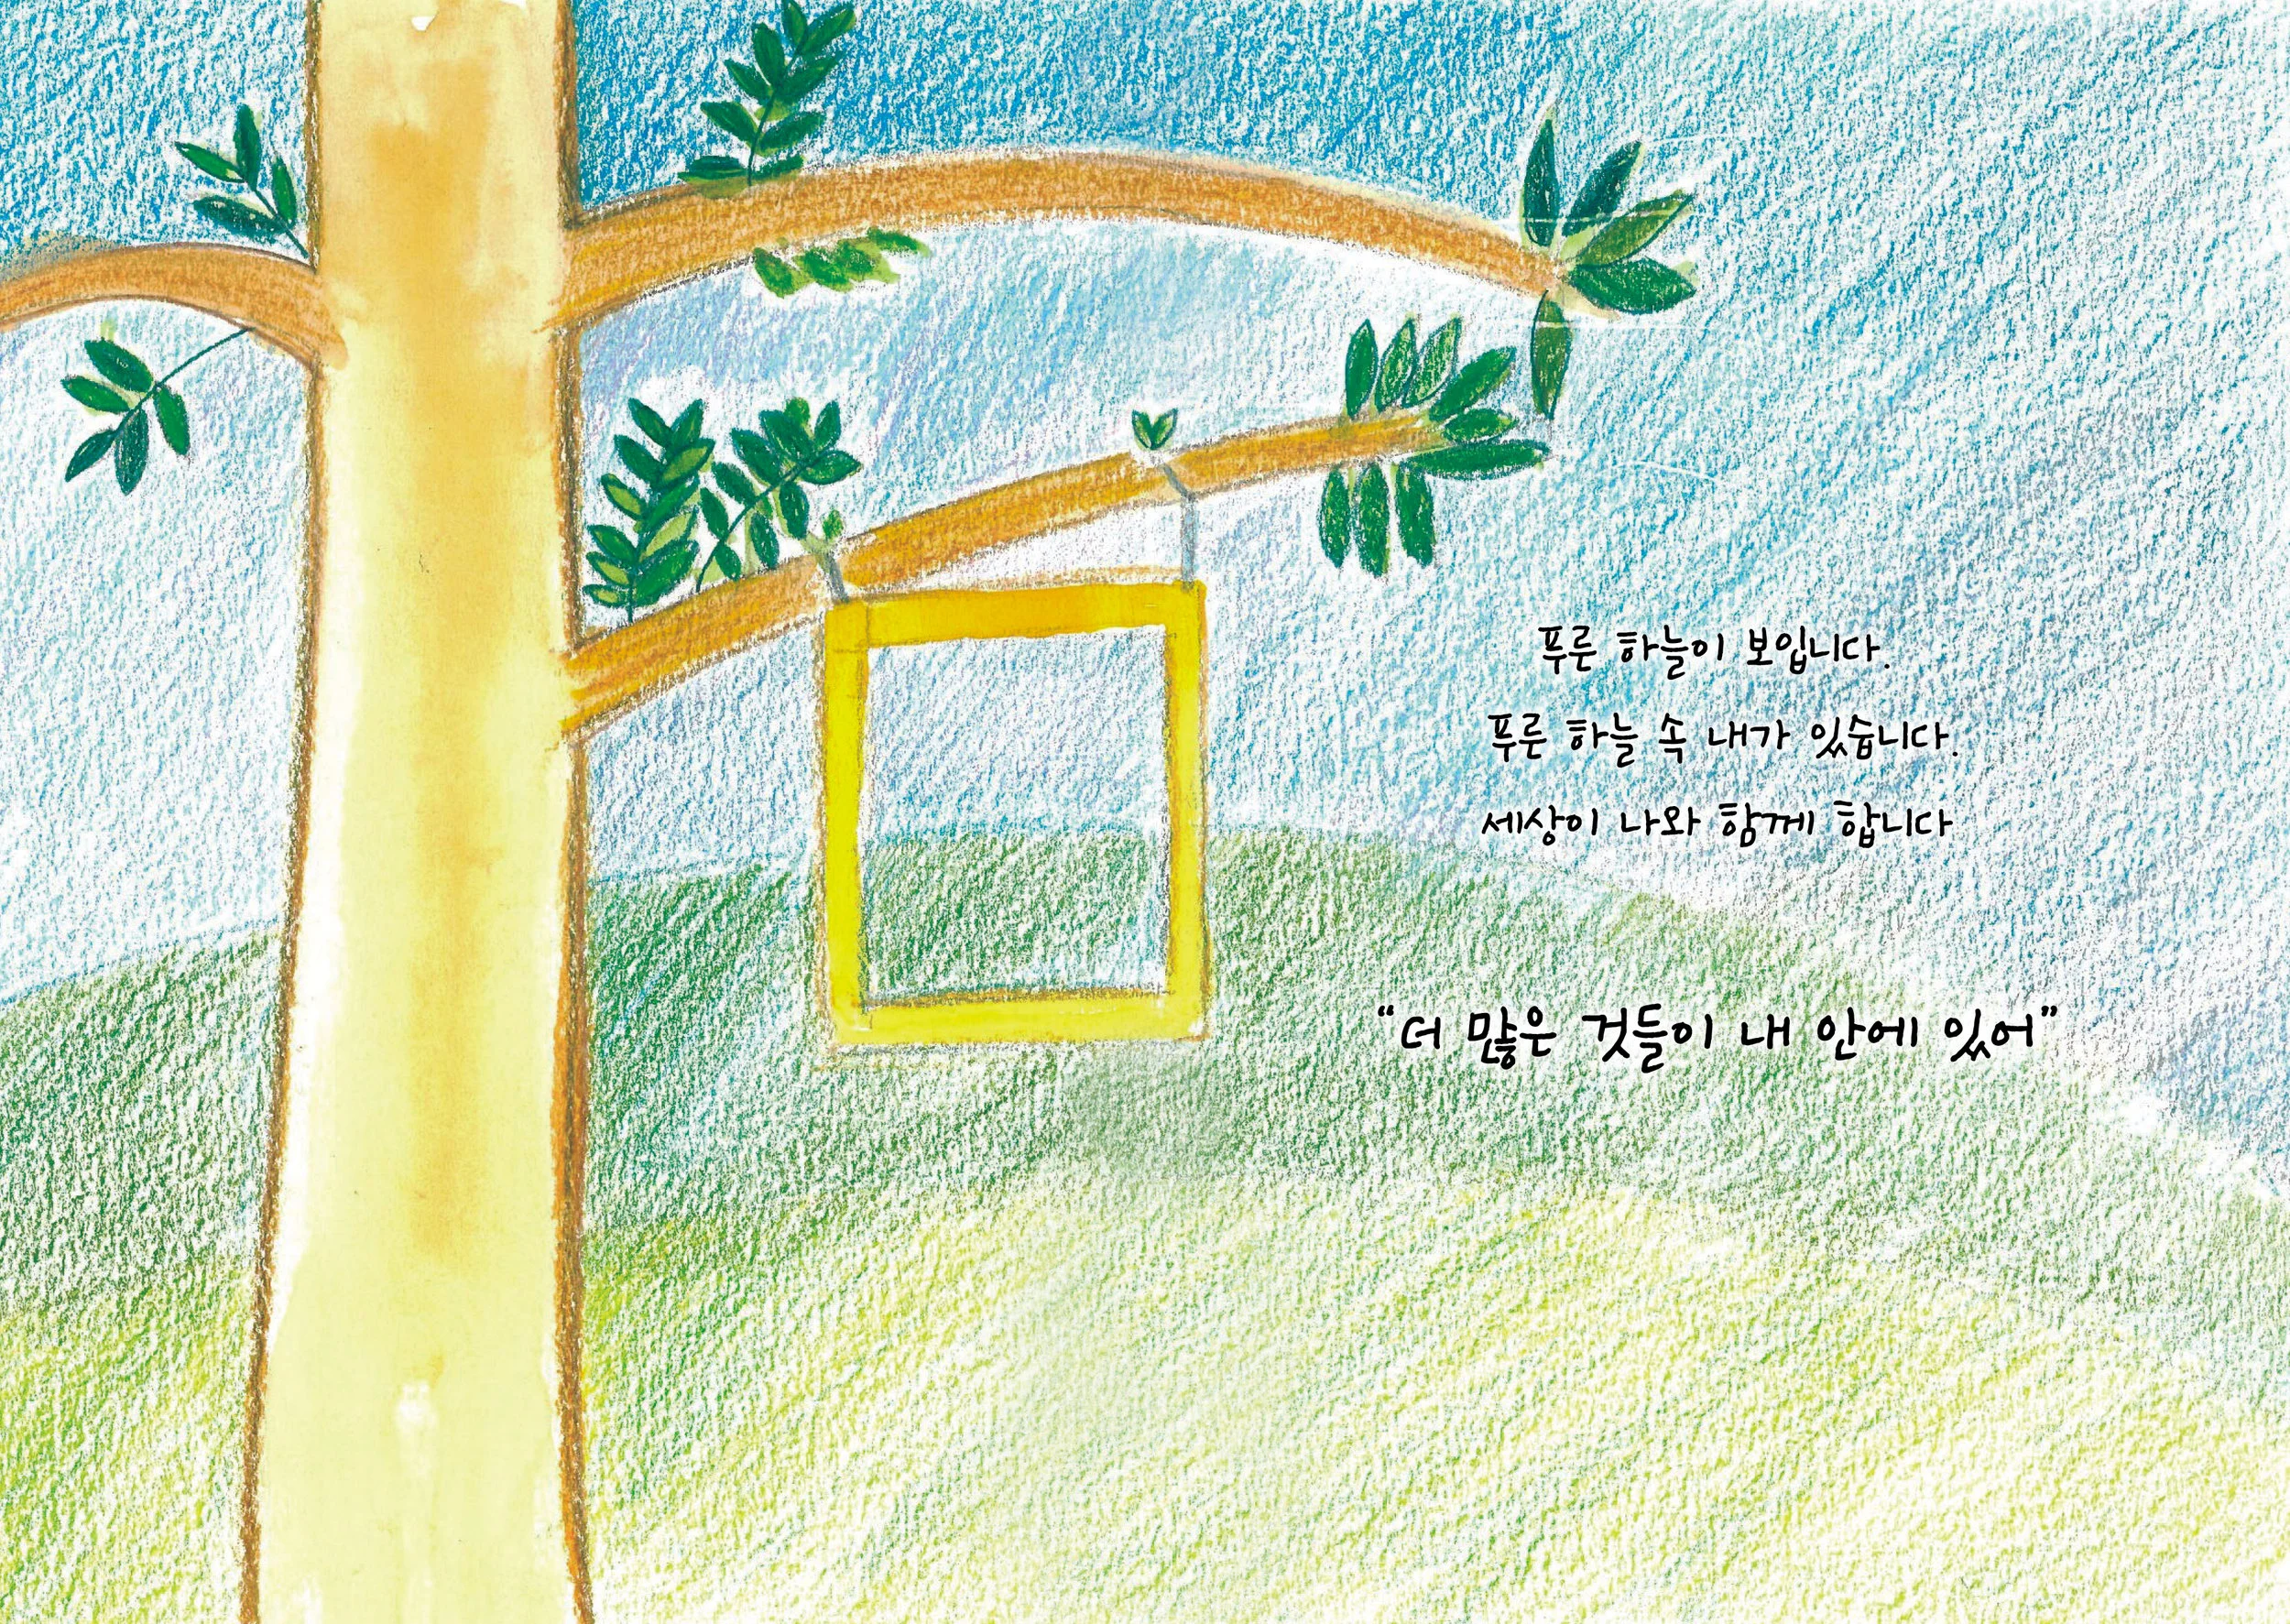 푸룬 하늘이 보입니다.
푸룬 하늘 속 내가 있습니다.
세상이 나와 함께 합니다
“더 많은 것들이 내 안에 있어”